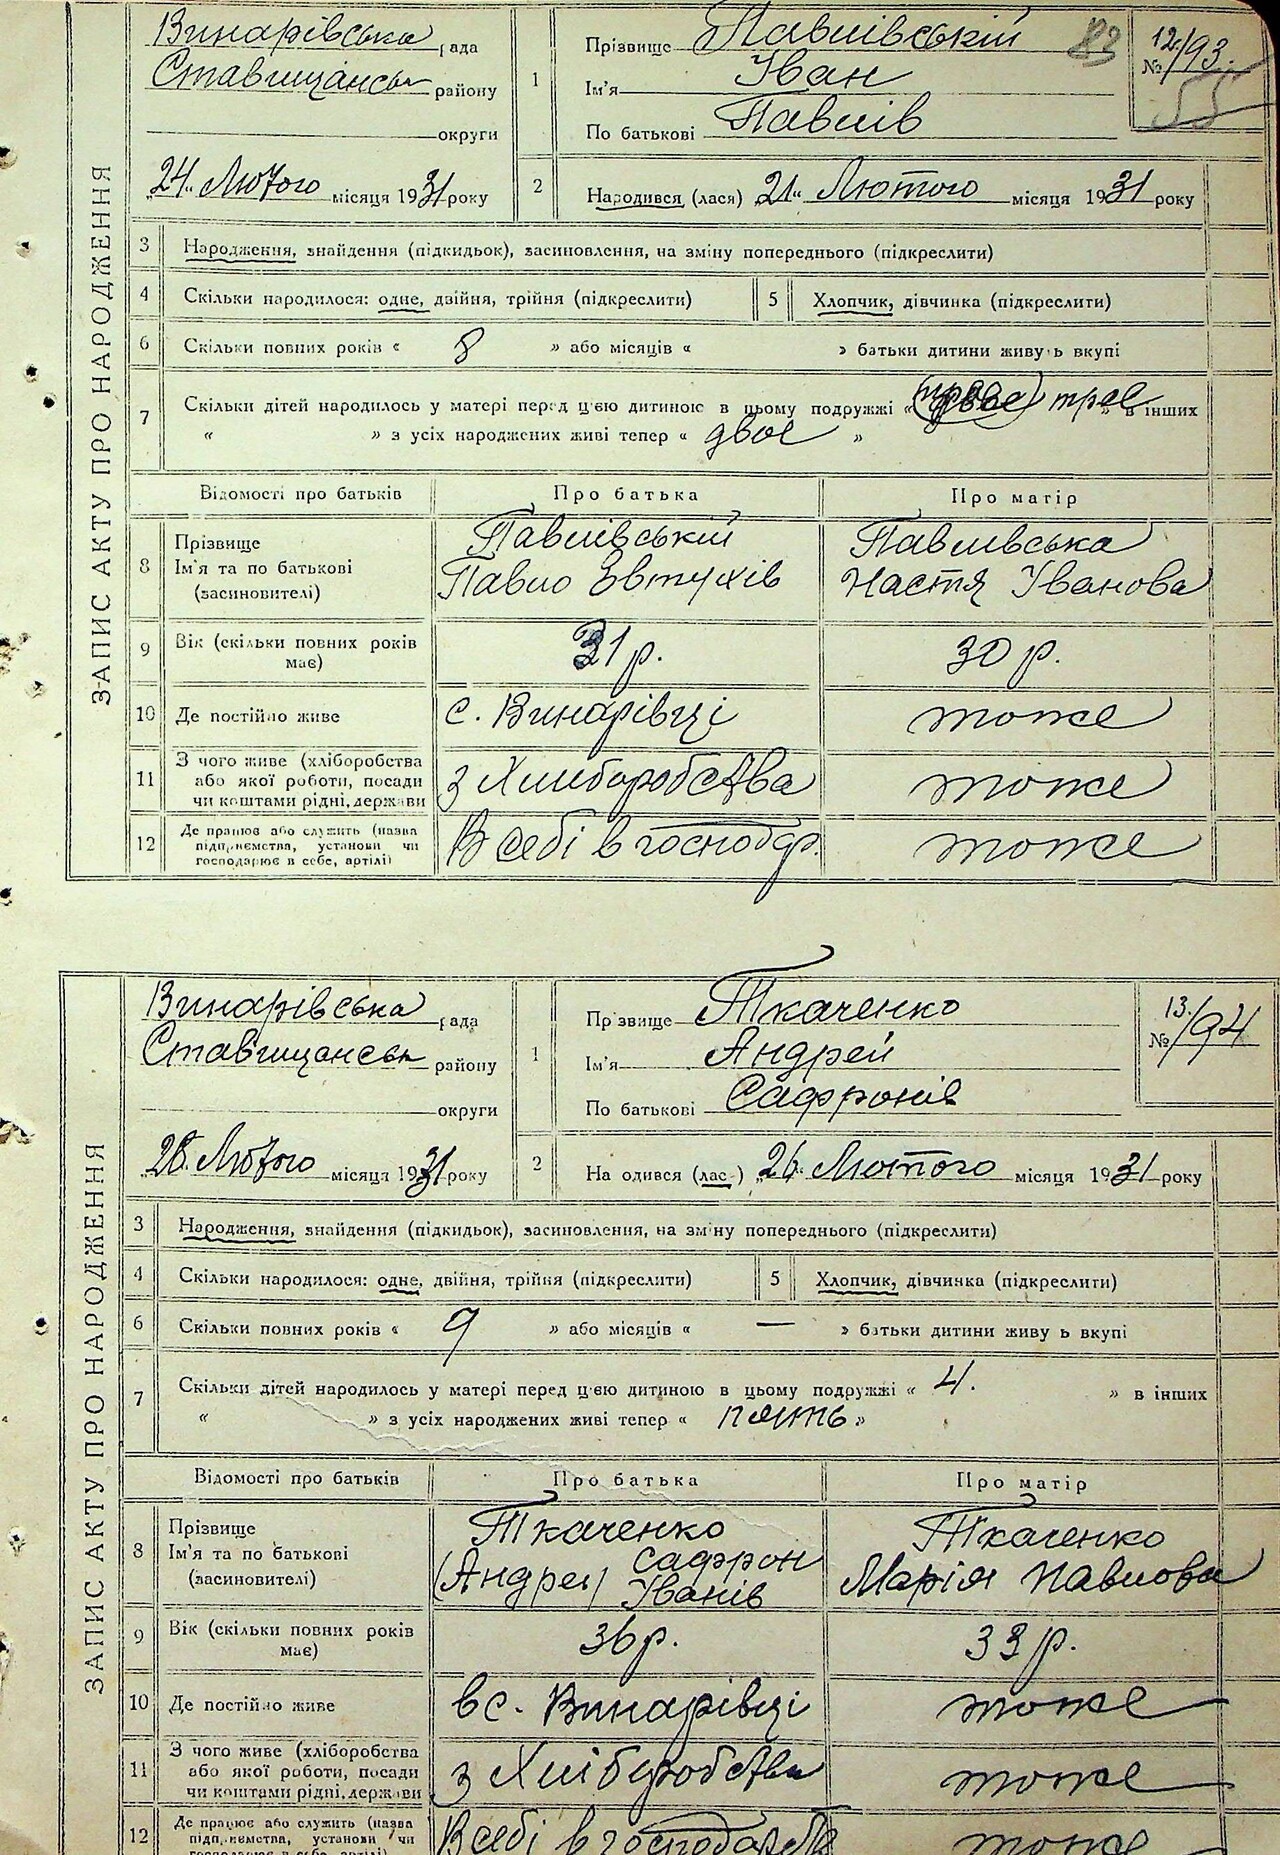 ЗАПИС АКТУ ПРО НАРОДЖЕННЯ
Винарівська рада
Ставищанськ району
округи
24 Лютого місяця 1931 року
1
Прізвище Павлівській
Ім'я Іван
По батькові Павлів
83
12
№/93.
55
2 Народився (лася) „21“ Лютого місяця 1931 року
3 Народження, знайдення (підкидьок), засиновлення, на зміну попереднього (підкреслити)
4 Скільки народилося: одне, двійня, трійня (підкреслити) 5 Хлопчик, дівчинка (підкреслити)
6 Скільки повних років « 8 » або місяців « » батьки дитини живуть вкупі
7 Скільки дітей народилось у матері перед цією дитиною в цьому подружжі « трое » в інших
« » з усіх народжених живі тепер « двое »
Відомості про батьків Про батька Про матір
8 Прізвище Павлівській Павлівська
Ім'я та по батькові Павло Євтухів Настя Іванова
(засиновителі)
9 Вік (скільки повних років має) 31 р. 30 р.
10 Де постійно живе с. Винарівці тоже
11 З чого живе (хліборобства
або якої роботи, посади з Хлиборобства тоже
чи коштами рідні, держави
12 Де працює або служить (назва
підприємства, установи чи В себі в господр. тоже
господарює в себе, артілі)
ЗАПИС АКТУ ПРО НАРОДЖЕННЯ
Винарівська рада
Ставищанськ району
округи
„28“ Лютого місяця 1931 року
1
Прізвище Ткаченко
Ім'я Андрей
По батькові Сафронів
13.
№/94
2 Народився (лась) „26“ Лютого місяця 1931 року
3 Народження, знайдення (підкидьок), засиновлення, на зміну попереднього (підкреслити)
4 Скільки народилося: одне, двійня, трійня (підкреслити) 5 Хлопчик, дівчинка (підкреслити)
6 Скільки повних років « 9 » або місяців « — » батьки дитини живуть вкупі
7 Скільки дітей народилось у матері перед цією дитиною в цьому подружжі « 4. » в інших
« » з усіх народжених живі тепер « пять »
Відомості про батьків Про батька Про матір
8 Прізвище Ткаченко Ткаченко
Ім'я та по батькові (Андрей) Сафрон Марія Павлова
(засиновителі) Іванів
9 Вік (скільки повних років має) 36 р. 33 р.
10 Де постійно живе в с. Винарівці тоже
11 З чого живе (хліборобства
або якої роботи, посади з Хліборобства тоже
чи коштами рідні, держави
12 Де працює або служить (назва
підприємства, установи чи В себі в господарстве тоже
господарює в себе, артілі)